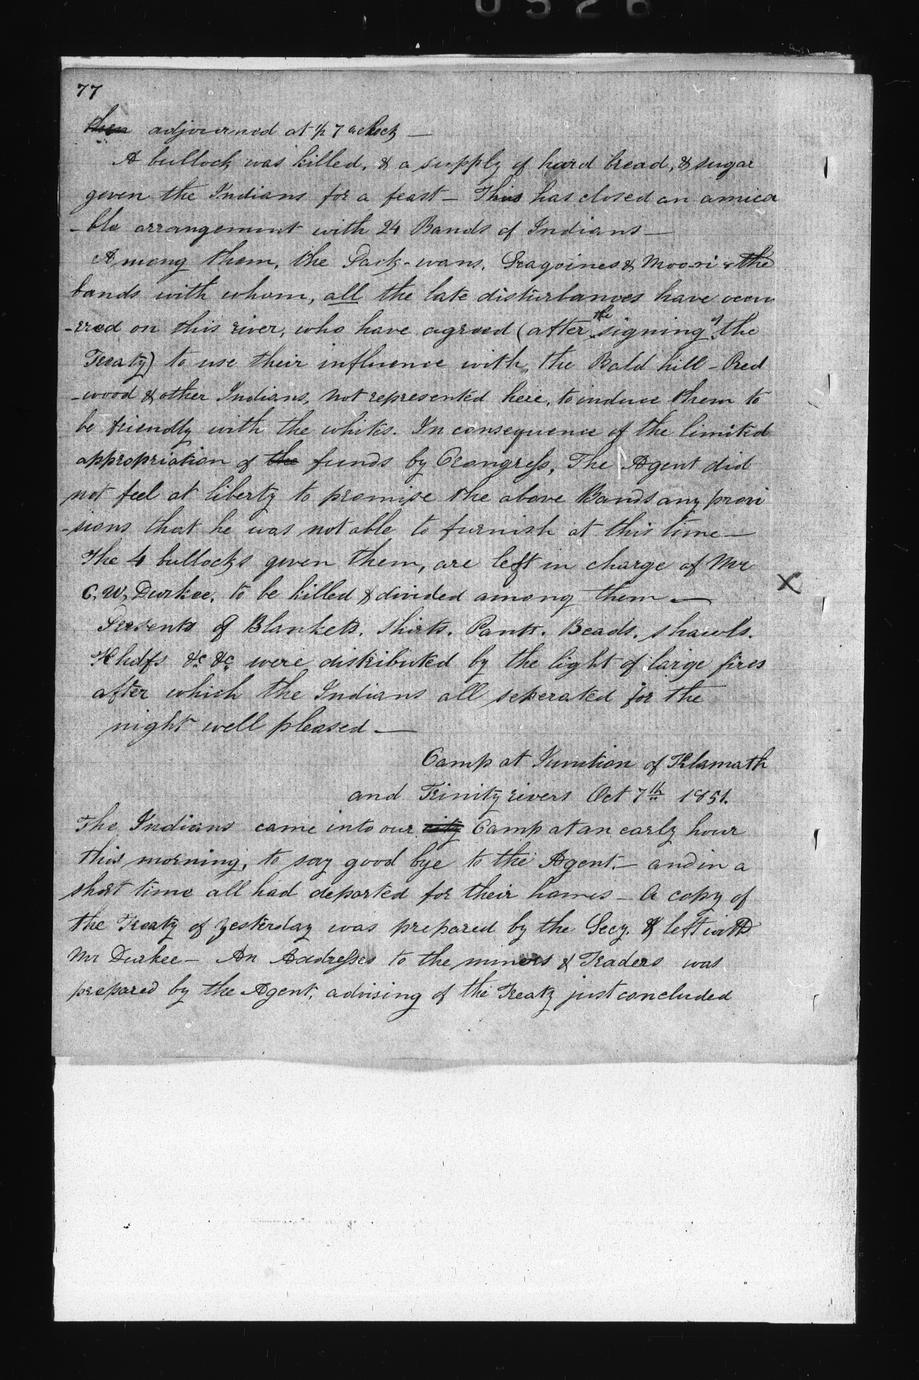 0526
77
then adjourned at ½ 7 oclock —
A bullock was killed, & a supply of hard bread, & sugar
given the Indians for a feast — This has closed an amica
-ble arrangement with 24 Bands of Indians —
Among them, the Pack-wans, Cragoines & Moo-ri & the
bands with whom, all the late disturbances have occur
-red on this river, who have agreed (after the signing of the
Treaty) to use their influence with, the Bald hill - Red
-wood & other Indians, not represented here, to induce them to
be friendly with the whites. In consequence of the limited
appropriation of the funds by Congress, The Agent did
not feel at liberty to promise the above Bands any provi
-sions that he was not able to furnish at this time —
The 4 bullocks given them, are left in charge of Mr
C. W. Durkee, to be killed & divided among them —
X
Presents of Blankets, Shirts, Pants, Beads, Shawls,
Hkdfs &c &c were distributed by the light of large fires
after which the Indians all seperated for the
night well pleased —
Camp at Junction of Klamath
and Trinity rivers Oct 7th 1851.
The Indians came into our city Camp at an early hour
this morning, to say good bye to the Agent — and in a
short time all had departed for their homes — A copy of
the Treaty of yesterday was prepared by the Secy. & left with
Mr Durkee — An Addresses to the miners & Traders was
prepared by the Agent, advising of the Treaty just concluded